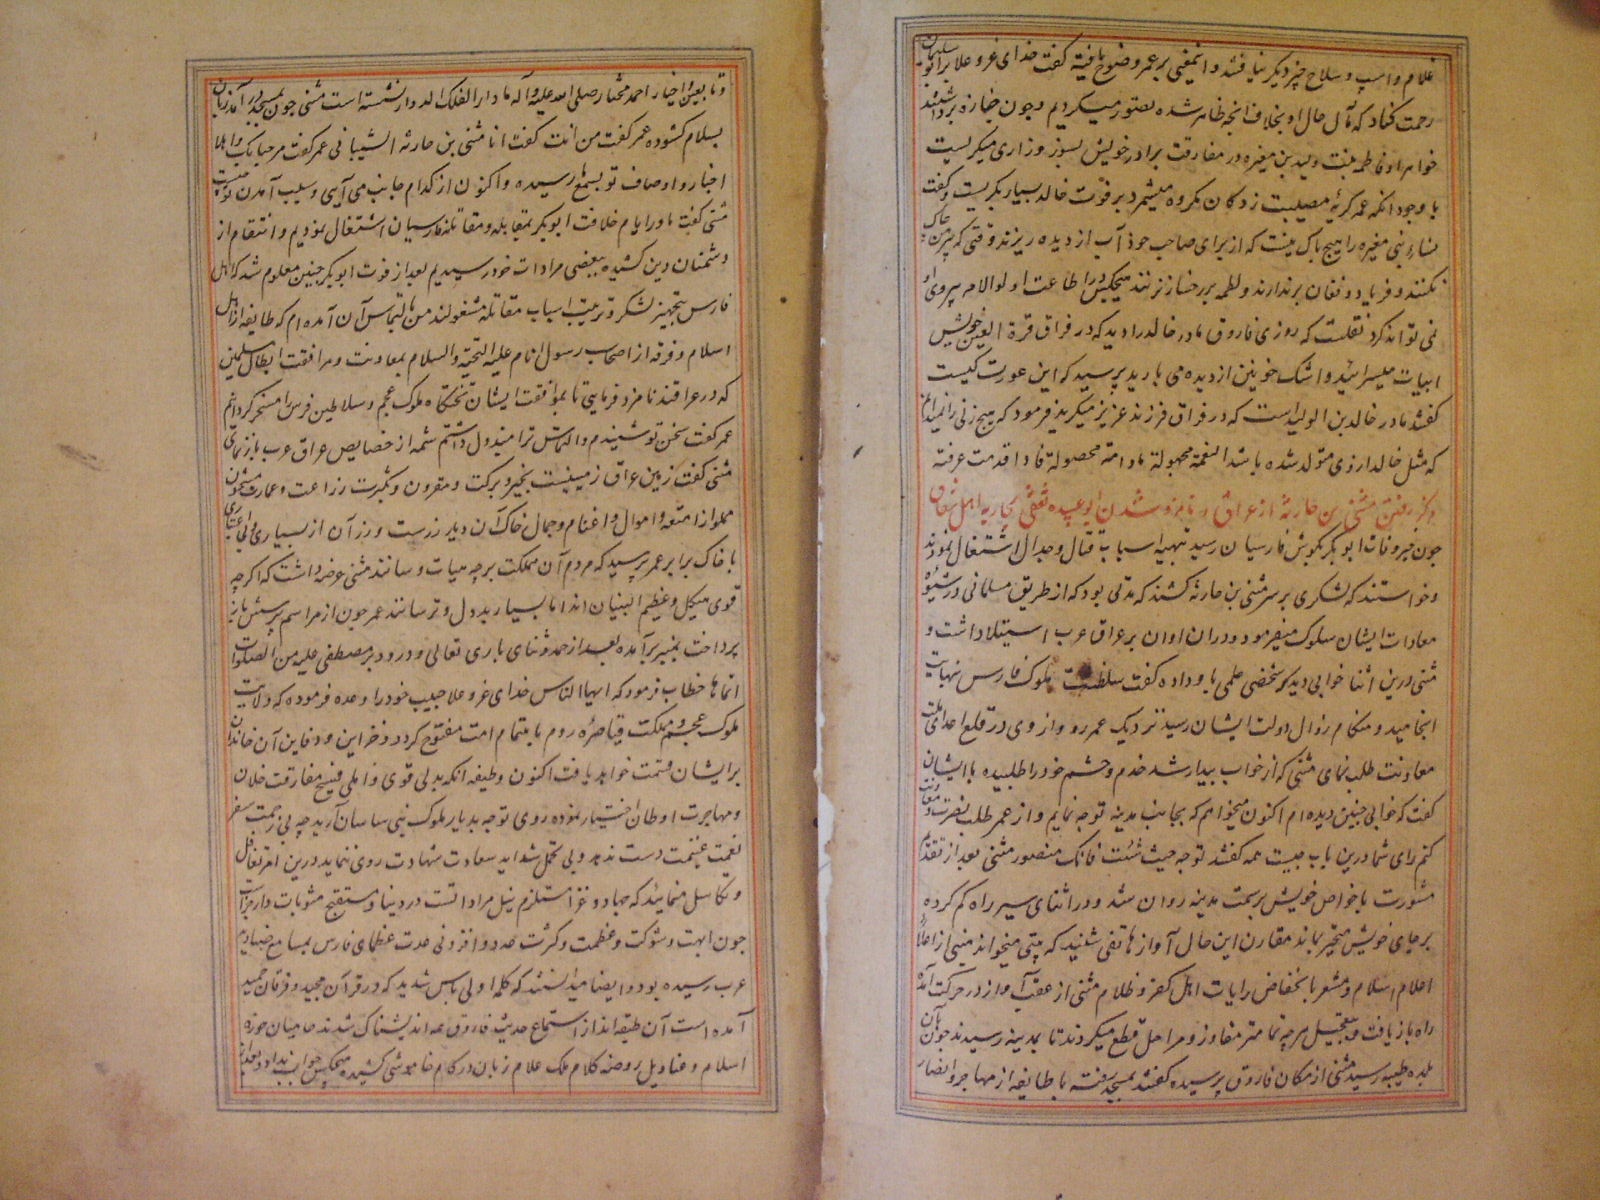 غلام و اسپ و سلاح چیز دیگر نیافتند و اینمعنی بر عمر وضوح یافته گفت خدای عز و علا بر ابو سلیمان
رحمت کناد که مآل حال او بخلاف انچه ظاهر شده تصور میکردیم و چون جنازه برداشتند
خواهر او فاطمه بنت ولید بن مغیره در مفارقت برادر خویش بسوز و زاری میگریست
با وجود انکه عمر گریه مصیبت زدکان مکروه میشمرد بر فوت خالد بسیار بگریست و گفت
نساء بنی مغیره را هیچ باک نیست که از برای صاحب خود آب از دیده ریزند وقتی که خاک بر سر
نکنند و فریاد و فغان بر ندارند و لطمه بر رخسار نزنند هیچکس را در اطاعت اولوالامر پیروی او
نمی تواند کرد نقلست که روزی فاروق مادر خالد را دید که در فراق قرة العین خویش
ابیات میسرائید و اشک خونین از دیده می بارید پرسید که این عورت کیست
گفتند مادر خالد بن الولید است که در فراق فرزند عزیز میگرید فرمود که هیچ زنی را نمیدانم
که مثل خالد ازوی متولد شده باشد النعمة مجهولة مادامة محصولة فاذا قدمت عرفته
ذکر رفتن مثنی بن حارثه از عراق و نامزد شدن ابو عبیده ثقفی بمحاربه اهل شقاق
چون خبر وفات ابو بکر بگوش فارسیان رسید بتهیه اسباب قتال و جدال اشتغال نمودند
و خواستند که لشکری بر سر مثنی بن حارثه کشند که مدتی بود که از طریق مسلمانی در شیوه
معادات ایشان سلوک میفرمود و دران اوان بر عراق عرب استیلا داشت و
مثنی درین اثنا خوابی دید که شخصی علمی باو داده گفت سلطنت ملوک فارس نهایت
انجامید و هنگام زوال دولت ایشان رسید نزدیک عمر رو و از وی در قلع اعدای ملت
معاونت طلب نمای مثنی که از خواب بیدار شد خدم و حشم خود را طلبیده با ایشان
گفت که خوابی چنین دیده ام اکنون میخواهم که بجانب مدینه توجه نمایم و از عمر طلب نصرت و معاونت
کنم رای شما درین باب چیست همه گفتند توجه حیث شئت فانک منصور مثنی بعد از تقدیم
مشورت با خواص خویش بر سمت مدینه روان شد و در اثنای سیر راه کم کرده
بر جای خویش متحیر بماند مقارن این حال آواز هاتفی شنید که بیتی میخواند مبنی از اعلاء
اعلام اسلام و مشعر با نخفاض رایات اهل کفر و ظلام مثنی از عقب آواز در حرکت آمده
راه باز یافت و بتعجیل هر چه تمامتر مفاوز و مراحل قطع میکردند تا بمدینه رسیدند چون بآن
بلده طیبه رسید مثنی از مکان فاروق پرسیده گفتند بمسجد رفته با طایفه از مهاجر و انصار
و تابعین اخیار احمد مختار صلی الله علیه و آله مادار الفلک الدوار نشسته است مثنی چون بمسجد در آمد زبان
بسلام کشوده عمر گفت من انت گفت انا مثنی بن حارثه الشیبانی عمر گفت مرحبا بک و اهلا
اخبار و اوصاف تو بسمع ما رسیده و اکنون از کدام جانب می آیی و سبب آمدن تو چیست
مثنی گفت ما در ایام خلافت ابو بکر بمقابله و مقاتله فارسیان اشتغال نمودیم و انتقام از
دشمنان دین کشیده ببعضی مرادات خود رسیدیم بعد از فوت ابو بکر چنین معلوم شد که اهل
فارس بتجهیز لشکر و ترتیب اسباب مقاتله مشغولند من بالتماس آن آمده ام که طایفه از اهل
اسلام و فرقه از اصحاب رسول انام علیه التحیة والسلام بمعاونت و مرافقت ابطال مسلمین
که در عراقند نامزد فرمایی تا بموافقت ایشان تختگاه ملوک عجم و سلاطین فرس مسخر گردانم
عمر گفت سخن تو شنیدم و التماس ترا مبذول داشتم شمه از خصایص عراق عرب باز نمای
مثنی گفت زمین عراق زمینیست بخیر و برکت و مقرون و بکثرت زراعت و عمارت مشحون
مملو از امتعه و اموال و اغنام و جمال خاک آن دیار زرست و زر آن از بسیاری و بی اعتباری
با خاک برابر عمر پرسید که مردم آن مملکت بر چه هیات و سانند مثنی عرضه داشت که اگر چه
قوی هیکل و عظیم البنیان اند اما بسیار بد دل و ترسانند عمر چون از مراسم پرسش باز
پرداخت بمنبر برآمده بعد از حمد و ثنای باری تعالی و درود بر مصطفی علیه من الصلوات
انماها خطاب فرمود که ایها الناس خدای عز و علا حبیب خود را وعده فرموده که ولایت
ملوک عجم و مملکت قیاصره روم باهتمام امت مفتوح کردد ذخراین و دفاین آن خاندان
بر ایشان قسمت خواهد یافت اکنون وظیفه انکه بدلی قوی و املی فسیح مفارقت خلان
و مهاجرت اوطان اختیار نموده روی توجه بدیار ملوک بنی ساسان آرید چه بی زحمت سفر
نعمت غنیمت دست ندهد و بی تحمل شداید سعادت شهادت روی ننماید درین امر تغافل
و تکاسل منمایید که جهاد و غزا مستلزم نیل مراداتست در دنیا و مستقبح مثوبات دار جزا
چون ابهت و شوکت و عظمت و کثرت عدد و افزونی عدت عظمای فارس بمسامع صنادید
عرب رسیده بود و ایضا میدانستند که کلمه اولی باس شدید که در قرآن مجید و فرقان حمید
آمده است آن طبقه اند از استماع حدیث فاروق عمه اندیشناک شدند حامیان حوزه
اسلام و عنادیل روضه کلام ملک علام زبان در کام خاموشی کشیده هیچکس جواب نداد